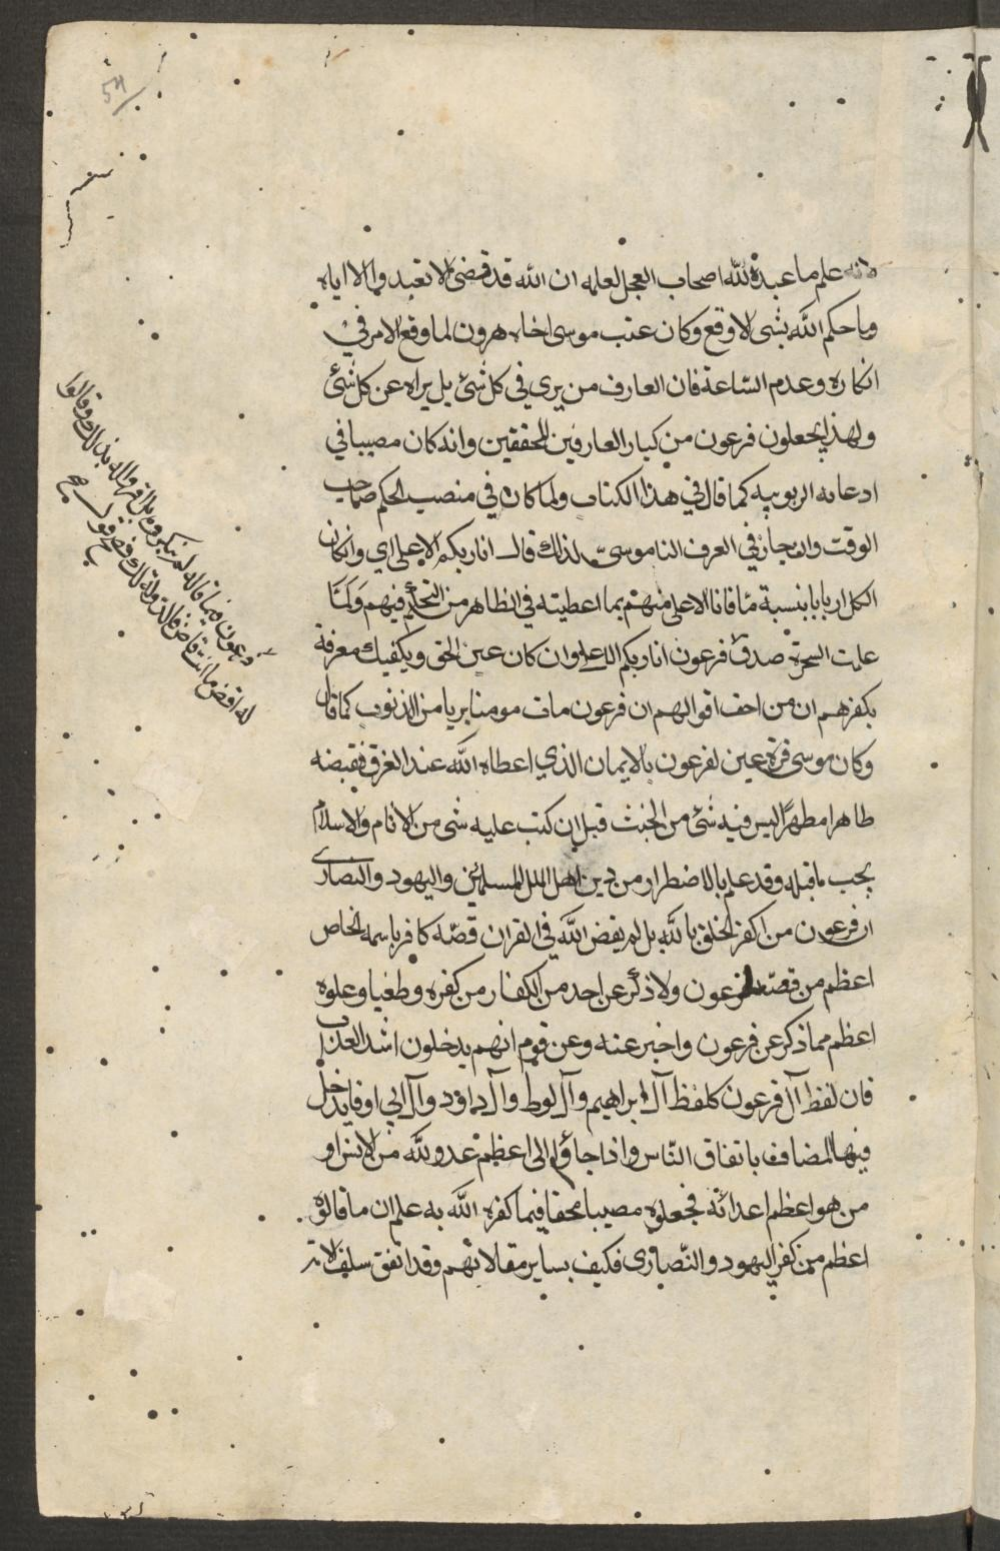 لانه علم ما عبده الله اصحاب العجل لعلمه ان الله قد قضى الا تعبدوا الا اياه
وما حكم الله بشى الا وقع وكان عتب موسى اخاه هرون لما وقع الامر في
انكاره وعدم اتساعه فان العارف من يري في كل شئ بل يراه عين كل شئ
ولهذا يجعلون فرعون من كبار العارفين المحققين وانه كان مصيبا في
ادعائه الربوبيه كما قال في هذا الكتاب ولما كان في منصب الحكم صاحب
الوقت وان جار في العرف الناموسي لذلك قال انا ربكم الاعلى اي وان كان
الكل اربابا بنسبة ما فانا الاعلى منهم بما اعطيته في الظاهر من التحكم فيهم ولما
علمت السحرة صدق فرعون انا ربكم الاعلى وان كان عين الحق ويكفيك معرفة
بكفرهم ان من اخف اقوالهم ان فرعون مات مومنا بريا من الذنوب كما قال
وكان موسى قرة عين لفرعون بالايمان الذي اعطاه الله عند الغرق فقبضه
طاهرا مطهرا ليس فيه شئ من الخبث قبل ان كتب عليه شى من الاثام والاسلام
يجب ما قبله وقد علم بالاضطرار من دين اهل الملل المسلمين واليهود والنصارى
ان فرعون من اكفر الخلق بالله بل لم يقض الله في القران قصة كافر باسمه الخاص
اعظم من قصة فرعون ولا ذكر عن احد من الكفار من كفره وطغيا وعلوه
اعظم مما ذكر عن فرعون واخبر عنه وعن قومه انهم يدخلون اشد العذاب
فان لفظ آل فرعون كلفظ آل ابراهيم وآل لوط وآل داؤد وآل ابي اوفا يدخل
فيها المضاف باتفاق الناس واذا جاؤا الى اعظم عدو لله من الانس او
من هو اعظم اعدائه فجعلوه مصيبا محقا فيما كفره الله به علم ان ما قالوه
اعظم من كفر اليهود والنصارى فكيف بساير مقالاتهم وقد اتفق سلف الامة
فرعون فيما قاله لم ينكروه بل اقروا له بذلك وقالوا
له اقض ما انت قاض فالدولة لك فصح قوله
صح
54